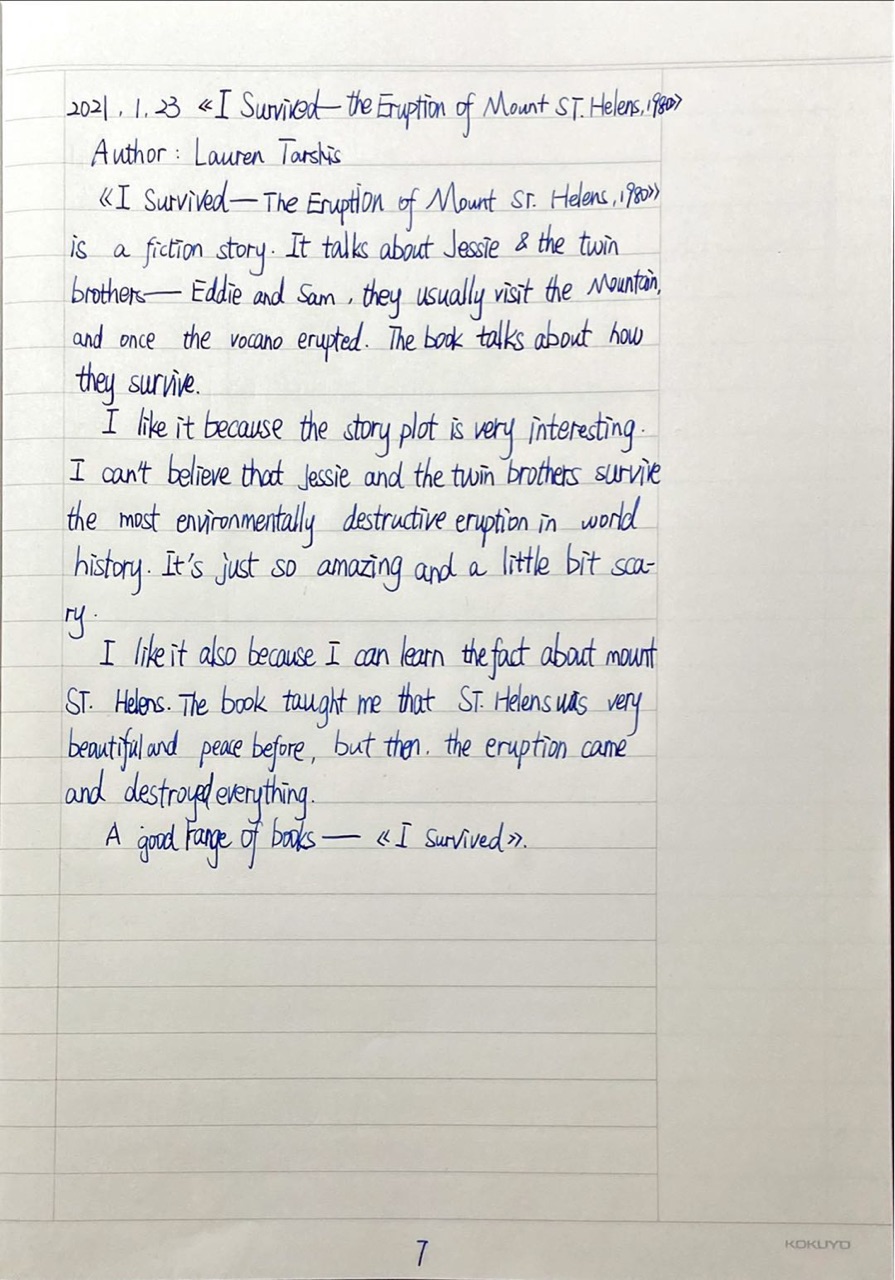 2021.1.23 《I Survived—the Eruption of Mount ST. Helens,1980》
Author: Lauren Tarshis
《I Survived—The Eruption of Mount ST. Helens,1980》
is a fiction story. It talks about Jessie & the twin
brothers—Eddie and Sam, they usually visit the Mountain,
and once the vocano erupted. The book talks about how
they survive.
I like it because the story plot is very interesting.
I can't believe that Jessie and the twin brothers survive
the most environmentally destructive eruption in world
history. It's just so amazing and a little bit sca-
ry.
I like it also because I can learn the fact about mount
ST. Helens. The book taught me that ST. Helens was very
beautiful and peace before, but then. the eruption came
and destroyed everything.
A good range of books—《I Survived》.
7
KOKUYO